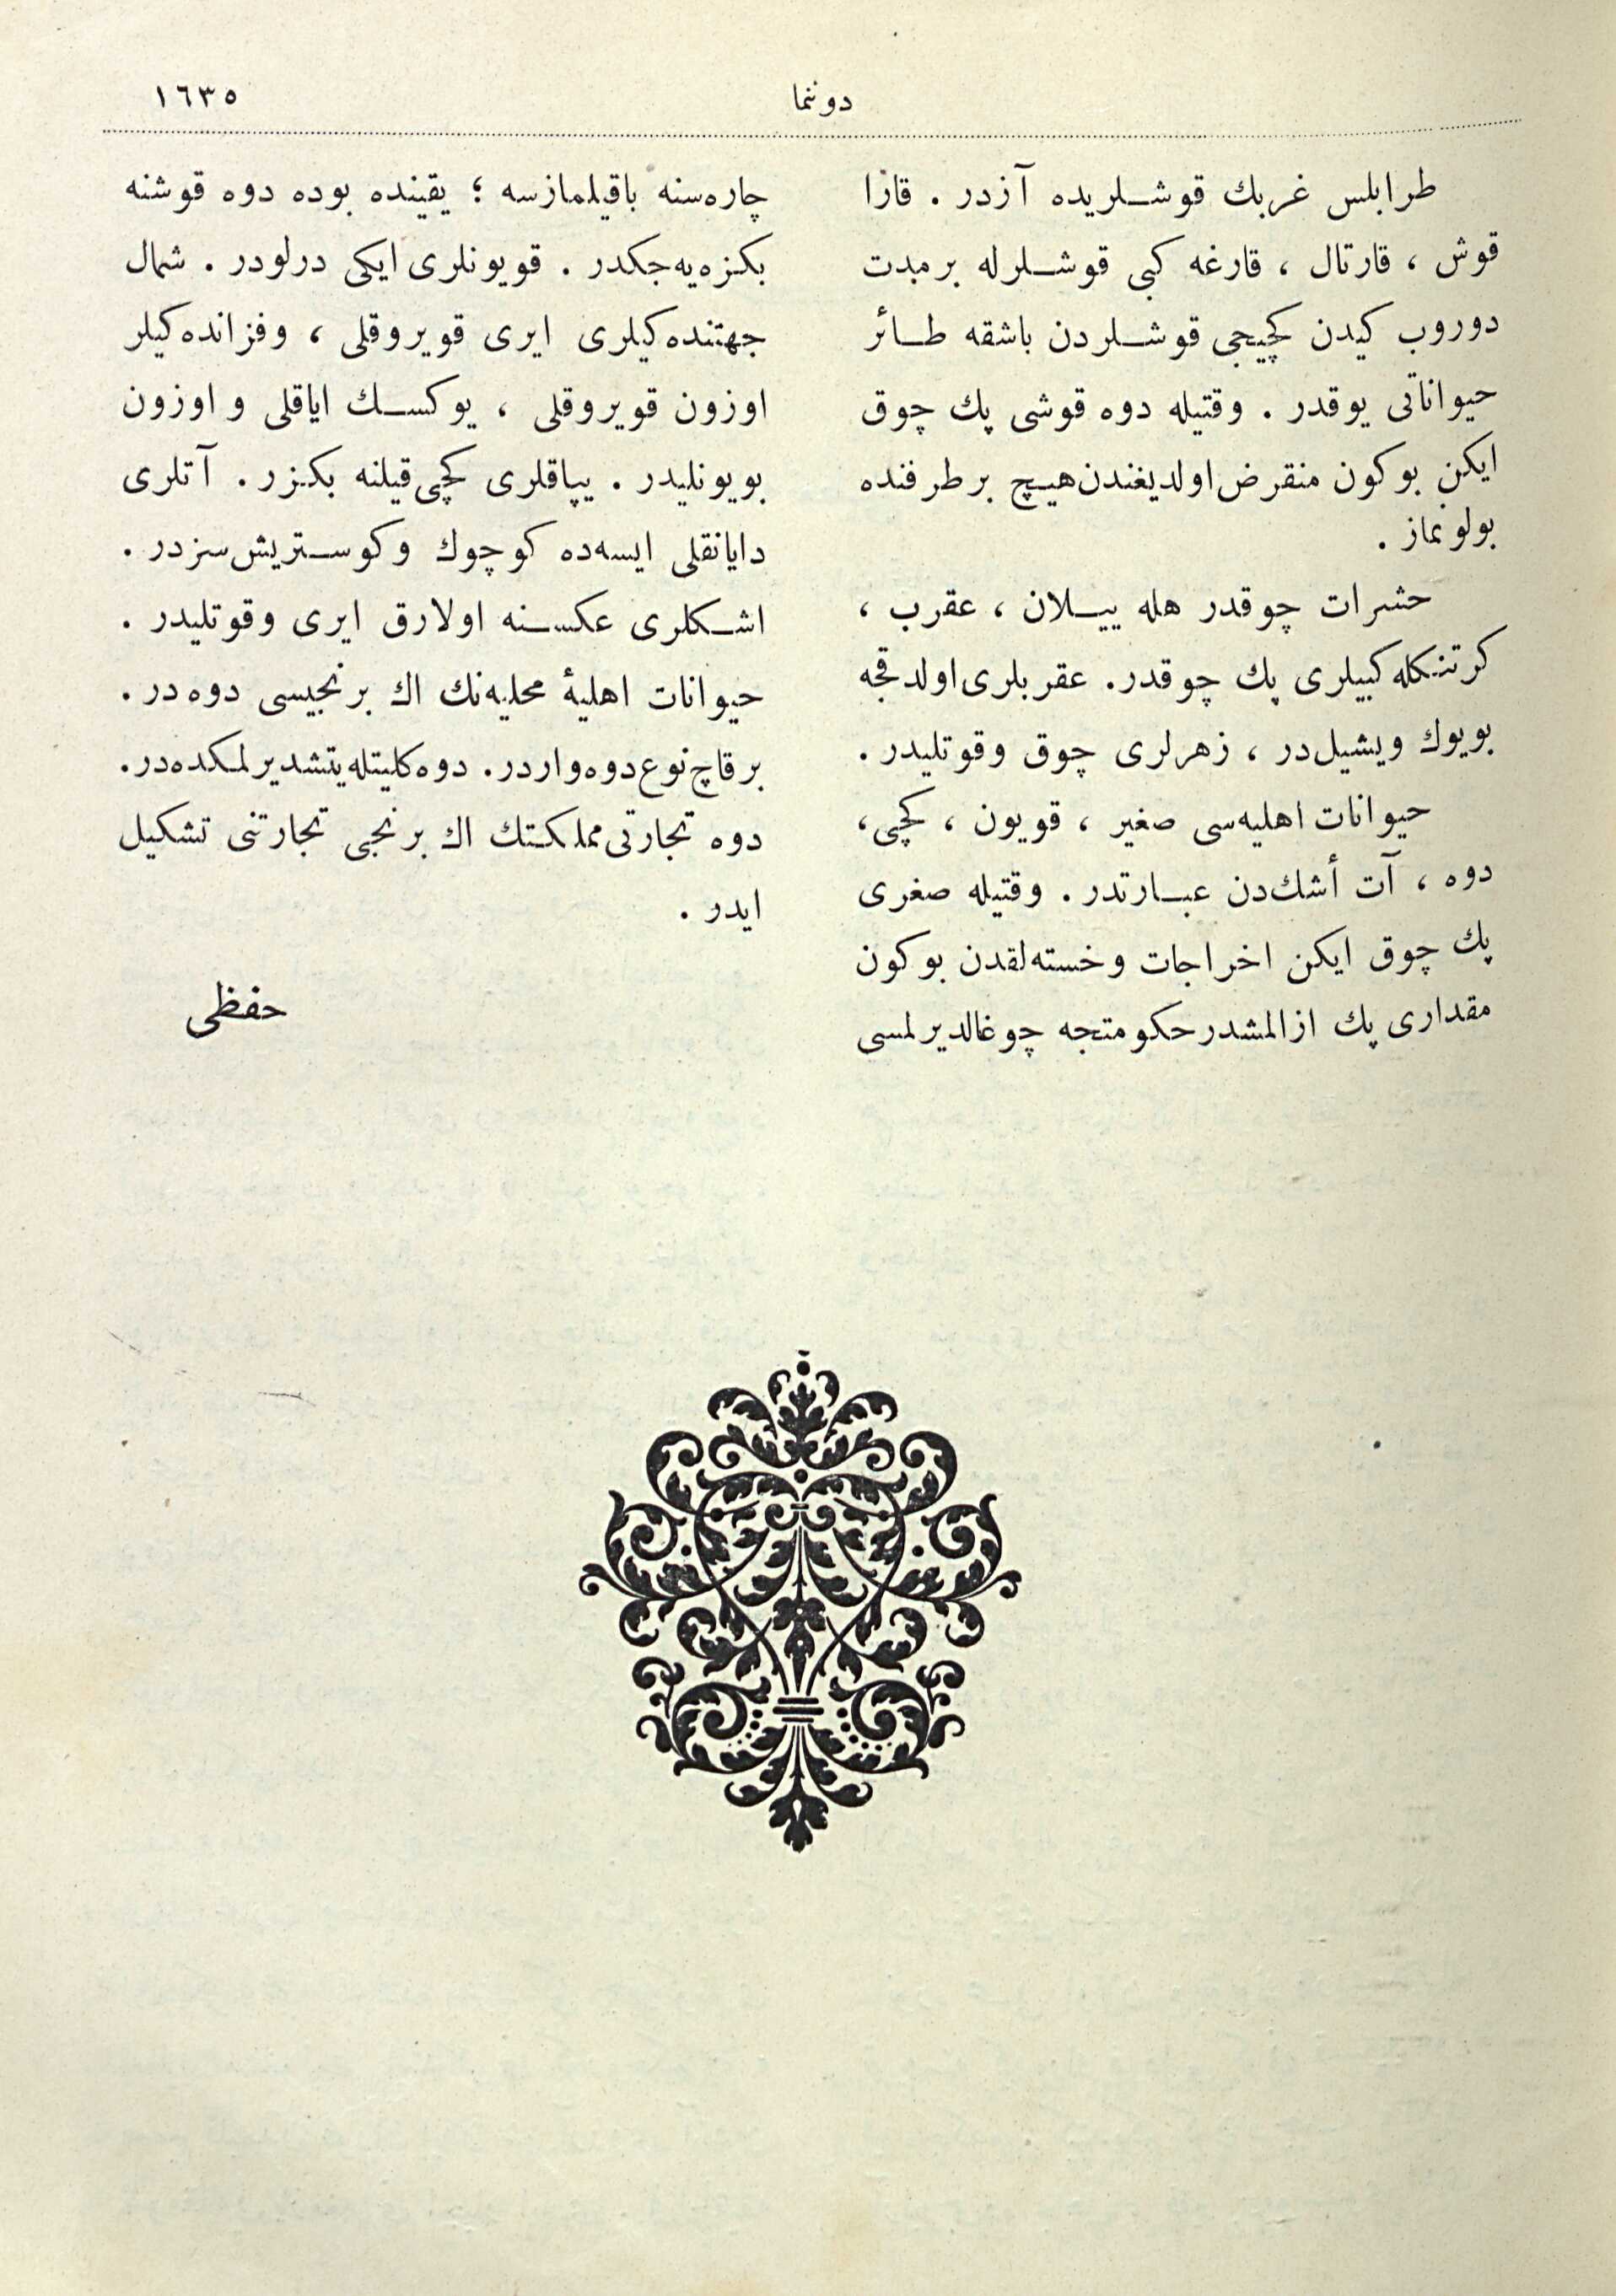 دوننما
١٦٣٥
طرابلس غربك قوشلریده آزدر . قازا
قوش ، قارتال ، قارغه كبی قوشلرله برمدت
دوروب كیدن كچیجی قوشلردن باشقه طائر
حیواناتی یوقدر . وقتیله دوه قوشی پك چوق
ایكن بوكون منقرض اولدیغندن هیچ برطرفنده
بولونماز .
حشرات چوقدر هله ییلان ، عقرب ،
كرتنكله كبیلری پك چوقدر. عقربلری اولدقجه
بویوك ویشیل در ، زهرلری چوق وقوتلیدر .
حیوانات اهلیه‌سی صغیر ، قویون ، كچی،
دوه ، آت أشك‌دن عبارتدر . وقتیله صغری
پك چوق ایكن اخراجات وخسته‌لقدن بوكون
مقداری پك ازالمشدر حكومتجه چوغالدیرلمسی
چاره‌سنه باقیلمازسه ؛ یقینده بوده دوه قوشنه
بكزه‌یه‌جكدر . قویونلری ایكی درلودر . شمال
جهتنده‌كیلری ایری قویروقلی ، وفزانده‌كیلر
اوزون قویروقلی ، یوكسك ایاقلی و اوزون
بویونلیدر . یپاقلری كچی قیلنه بكزر . آتلری
دایانقلی ایسه‌ده كوچوك وكوستریش‌سزدر .
اشكلری عكسنه اولارق ایری وقوتلیدر .
حیوانات اهلیۀ محلیه‌نك اك برنجیسی دوه‌در .
برقاچ نوع دوه واردر. دوه كلیتله یتشدیرلمكده‌در.
دوه تجارتی مملكتك اك برنجی تجارتنی تشكیل
ایدر .
حفظی